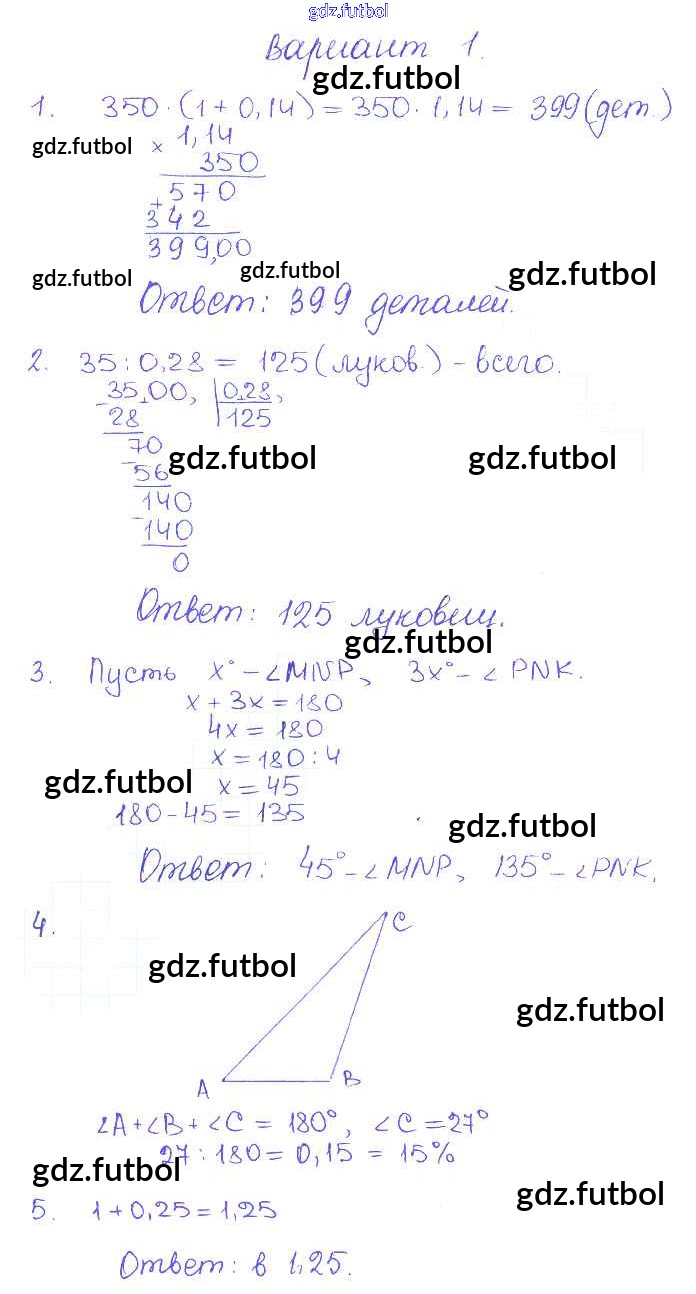 gdz.futbol
Вариант 1.
gdz.futbol
1. 350·(1+0,14)=350·1,14= 399(дет.)
gdz.futbol
× 1,14
350
+ 570
342
399,00
gdz.futbol
gdz.futbol
gdz.futbol
Ответ: 399 деталей.
2. 35:0,28 = 125(луков.)-всего.
-35,00, |0,28,
28 |125
70
-56
gdz.futbol
gdz.futbol
140
-140
0
Ответ: 125 луковиц.
gdz.futbol
3. Пусть x°-∠MNP, 3x°-∠PNK.
x+3x=180
4x=180
x=180:4
gdz.futbol
x=45
180-45= 135
gdz.futbol
Ответ: 45°-∠MNP, 135°-∠PNK.
4.
C
gdz.futbol
gdz.futbol
A B
∠A+∠B+∠C = 180°, ∠C=27°
27:180=0,15 = 15%
gdz.futbol
gdz.futbol
5. 1+0,25=1,25
Ответ: в 1,25.